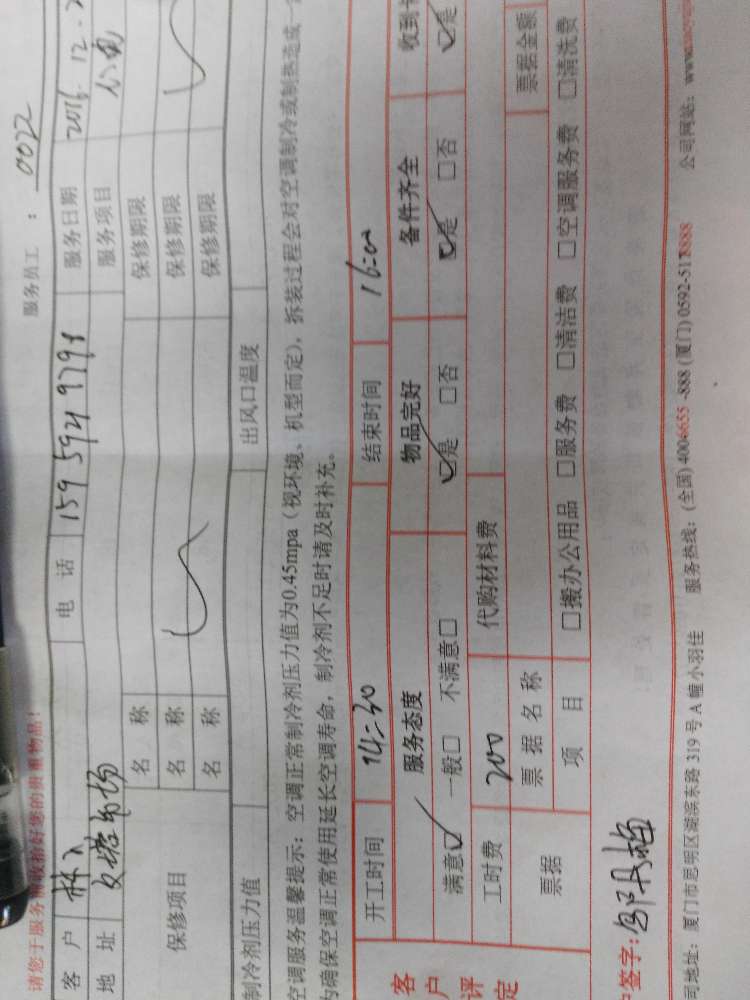 请您于服务前收拾好您的贵重物品!
服务员工 : 0022
客 户 林 电 话 159 5921 9798 服务日期 2016.12.
地 址 文塔市场 服务项目
保修项目
名 称 保修期限
名 称 保修期限
名 称 保修期限
制冷剂压力值 出风口温度
空调服务温馨提示: 空调正常制冷剂压力值为0.45mpa (视环境、机型而定), 拆装过程会对空调制冷或制热造成一
为确保空调正常使用延长空调寿命, 制冷剂不足时请及时补充。
客户评定
开工时间 14:30 结束时间 16:00
服务态度 物品完好 备件齐全 收到
满意☑ 一般□ 不满意□ ☑是 □否 ☑是 □否 ☑是
工时费 200 代购材料费
票据 票 据 名 称 票据金额
项 目 □搬办公用品 □服务费 □清洁费 □空调服务费 □清洗费
签字:
司地址: 厦门市思明区湖滨东路 319 号 A 幢小羽佳 服务热线: (全国) 4004655 -888 (厦门) 0592-5178888 公司网站: www.